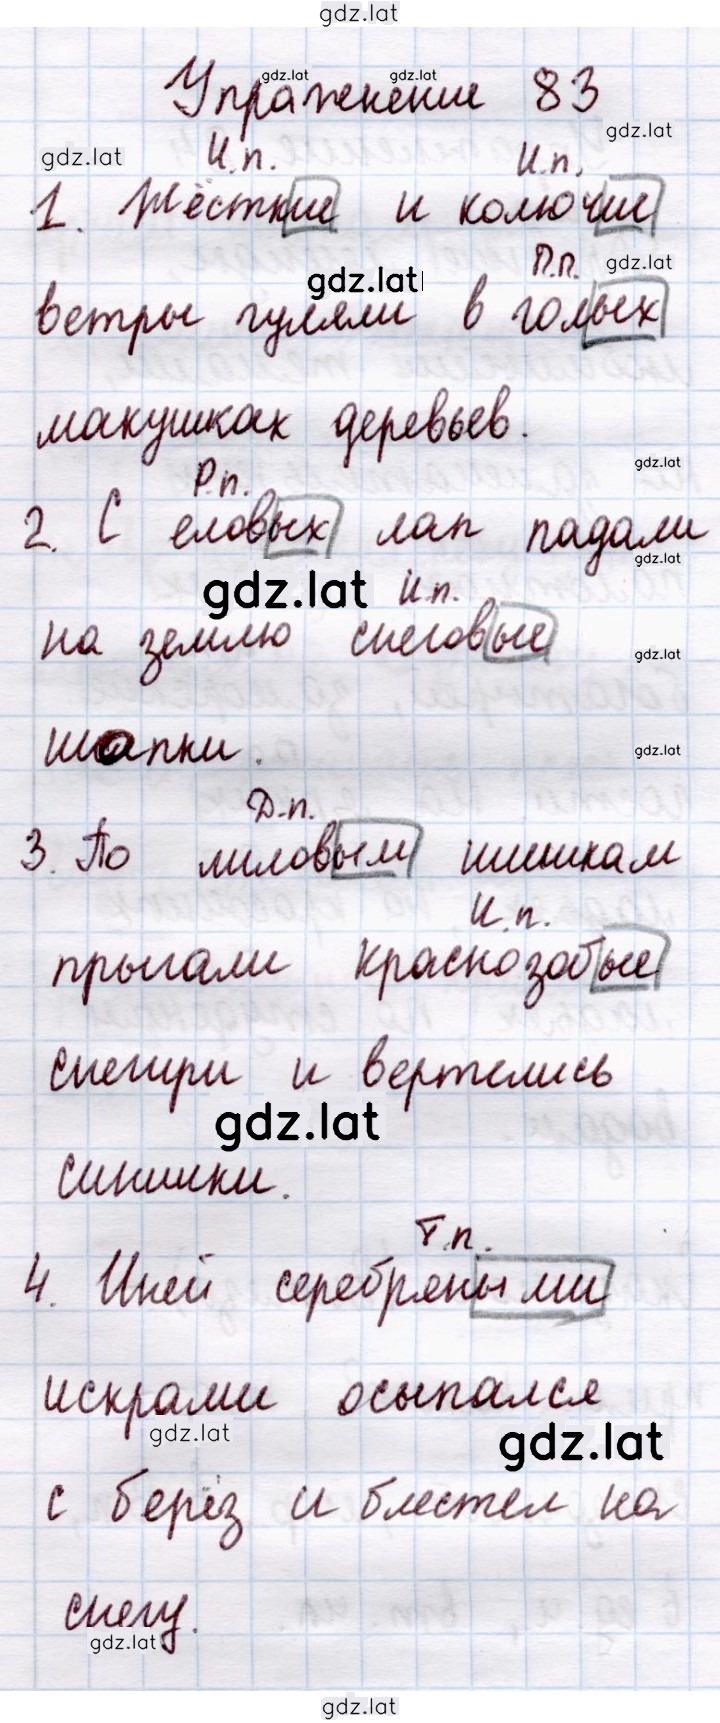 gdz.lat
Упражнение 83
gdz.lat gdz.lat
gdz.lat
gdz.lat И.п. И.п.
1. Жёсткие и колючие
gdz.lat П.п. gdz.lat
ветры гуляли в голых
макушках деревьев.
gdz.lat
Р.п.
2. С еловых лап падали
gdz.lat
gdz.lat И.п.
на землю снеговые
gdz.lat
шапки.
gdz.lat
Д.п.
3. По лиловым шишкам
И.п.
прыгали краснозобые
снегири и вертелись
gdz.lat
синички.
Т.п.
4. Иней серебряными
искрами осыпался
gdz.lat gdz.lat
с берёз и блестел на
снегу.
gdz.lat
gdz.lat